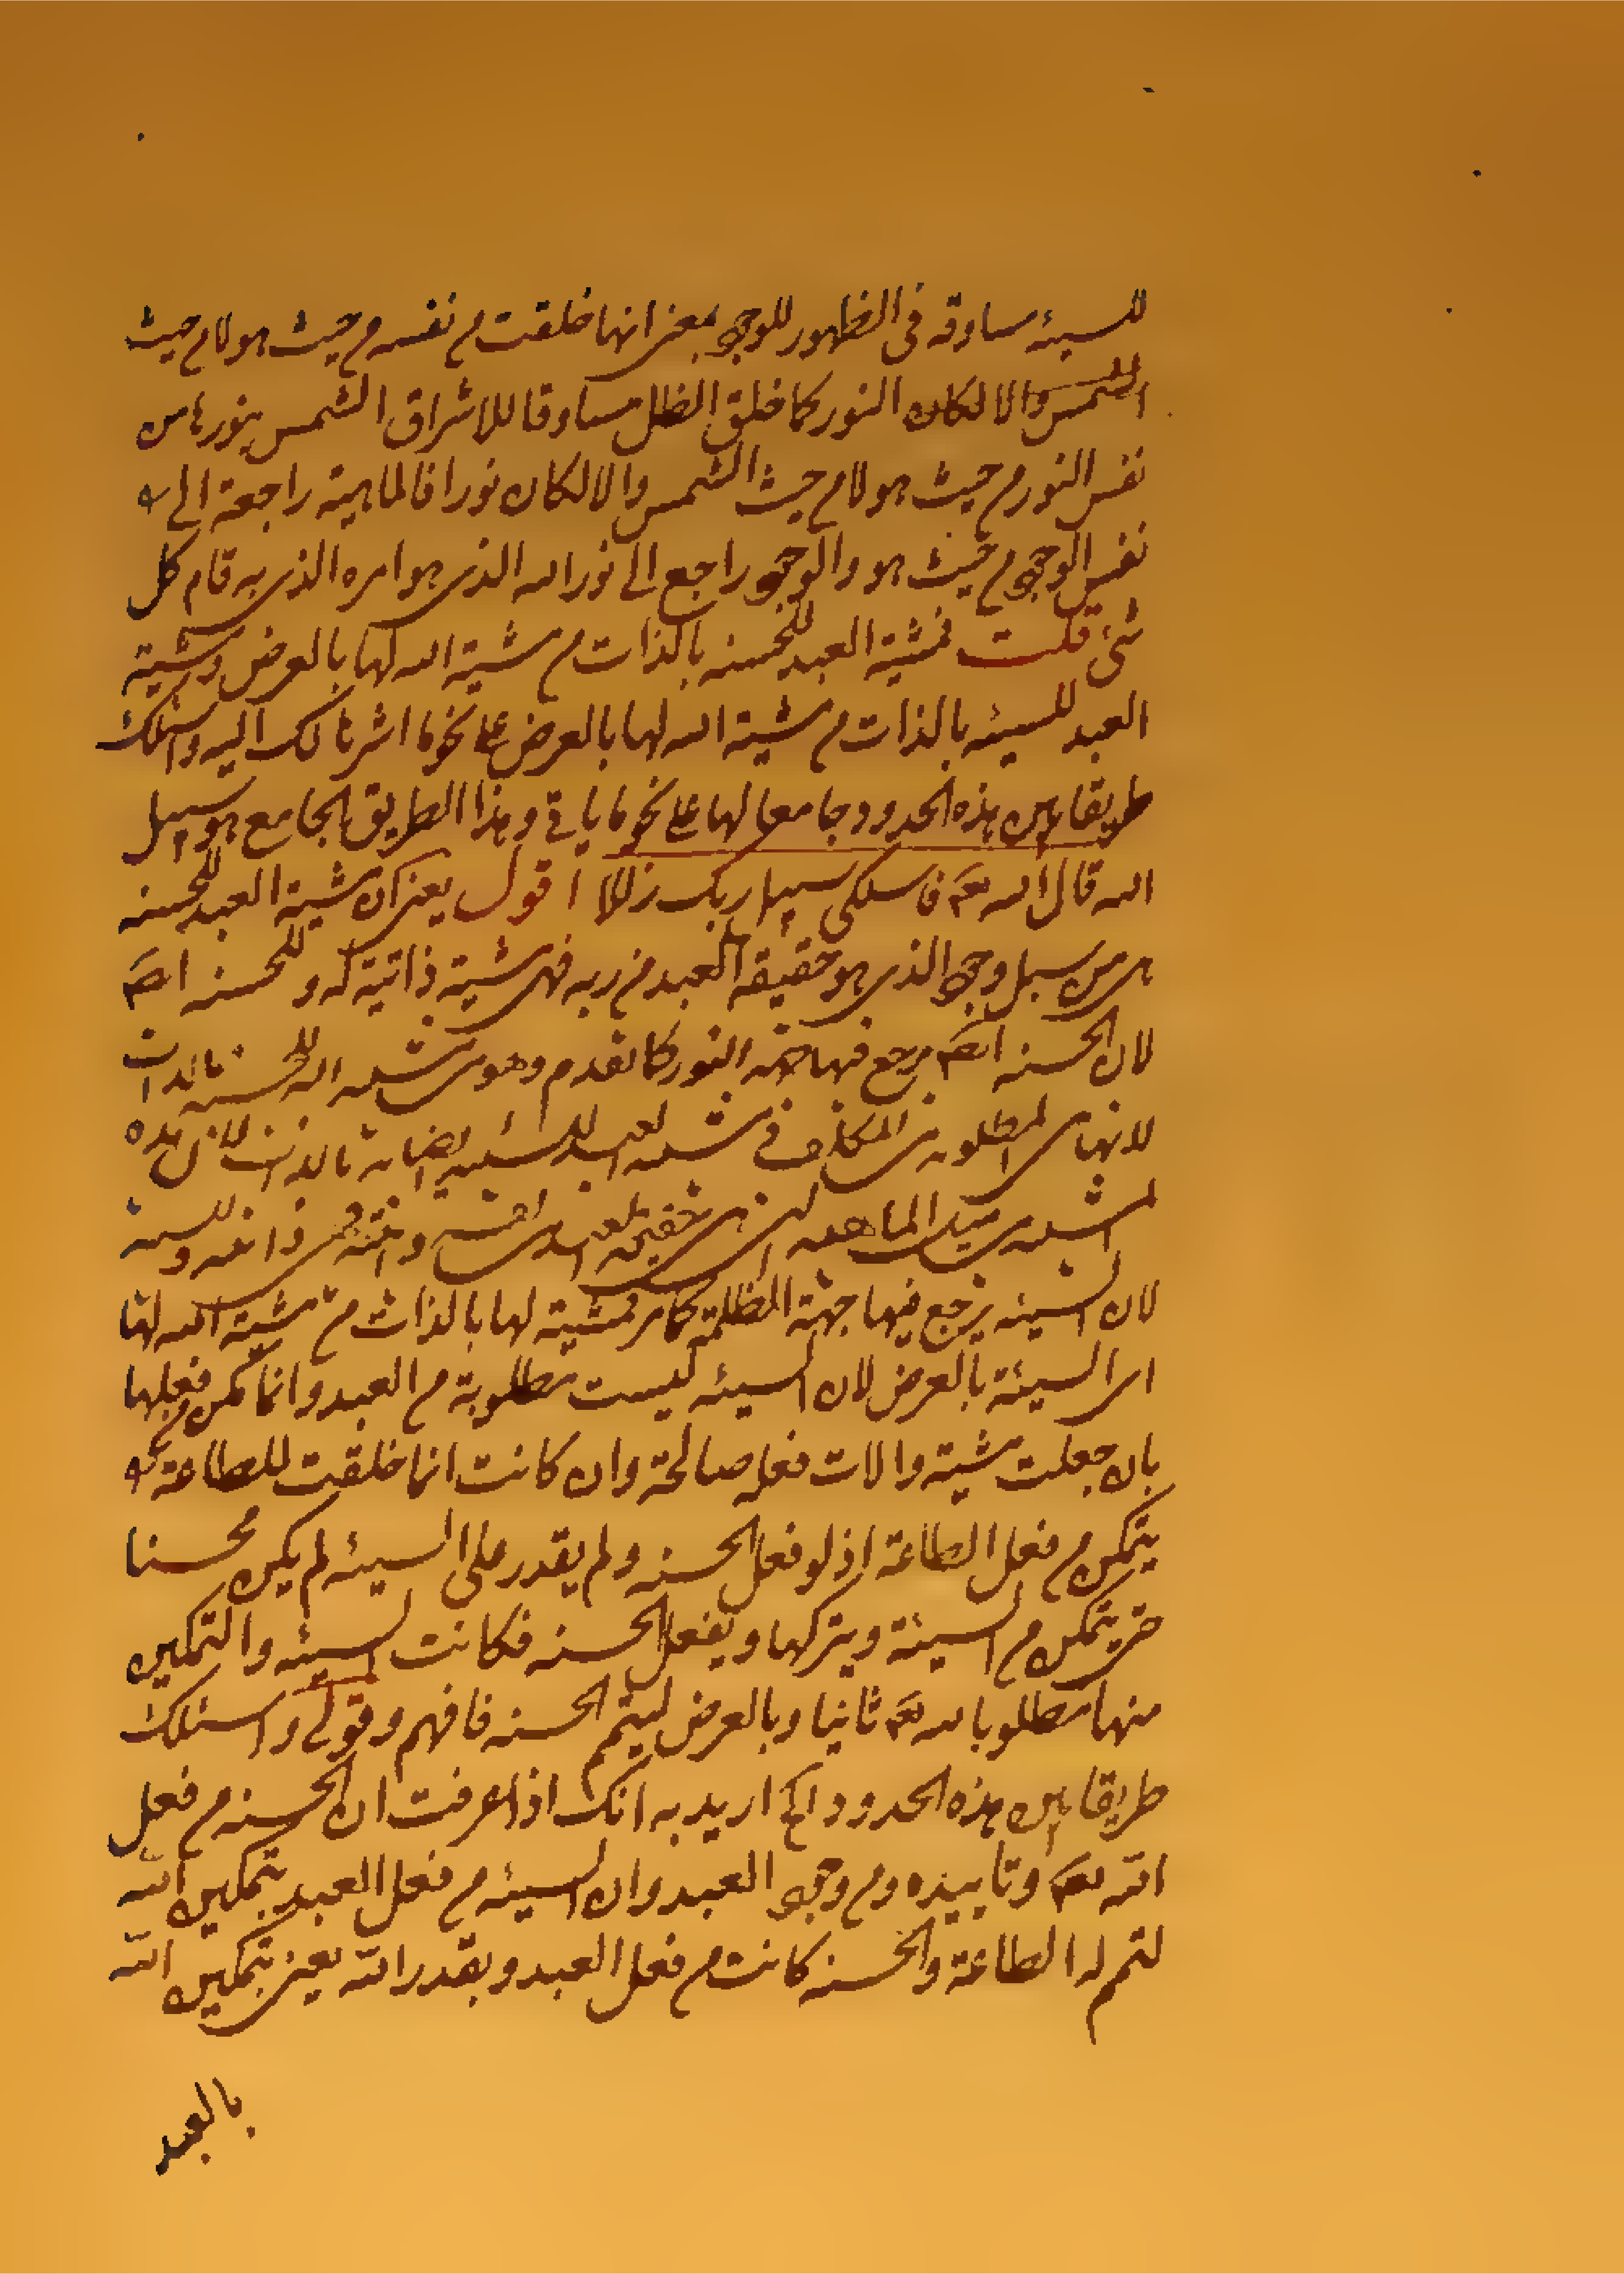 للسيئه مساوقه فى الظهور للوجود بمعنى انها خلقت م نفسه م حيث هو لا م حيث
الشمس والا لكان النور كما خلق الظل مساوقا للاشراق الشمس بنورها من
نفس النور م حيث هو لا م حيث الشمس والا لكان نورا فالماهية راجعة الى
نفس الوجود م حيث هو والوجود راجع الى نور الله الذى هو امره الذى به قام كل
شئ قلت فمشية العبد للحسنه بالذات م مشية الله لها بالعرض ومشية
العبد للسيئه بالذات م مشية الله لها بالعرض على نحو ما اشرنا لك اليه واسلك
طريقا بين هذه الحدود جامعا لها على نحو ما ياتى وهذا الطريق الجامع هو سبيل
الله قال الله تعا فاسلكى سبل ربك ذللا اقول يعنى ان مشية العبد للحسنه
هى من سبل وجود الذى هو حقيقة العبد من ربه فهى مشية ذاتية له وللحسنه ايضا
لان الحسنه ايضا يرجع فيها جهة النور كما تقدم وهو مشية الله للحسنه بالذات
لانها هى المطلوبه من المكلف فى مشية العبد للسيئه ايضا بالذات لان هذه
المشية من ميل الماهية التى هى حقيقة العبد من نفسه فهى ذاتية وللسيئه
لان السيئه يرجع فيها جهة الظلمة كما مر فمشية لها بالذات م مشية الله لها
اى السيئة بالعرض لان السيئه ليست مطلوبة م العبد وانما تمكن م فعلها
بان جعلت مشية والات فعله صالحة وان كانت انما خلقت للطاعة
يتمكن م فعل الطاعة اذ لو فعل الحسنه ولم يقدر على السيئه لم يكن محسنا
حتى يتمكن م السيئة ويتركها ويفعل الحسنه فكانت السيئه والتمكين
منها مطلوبا لله تعا ثانيا وبالعرض ليتم الحسنه فافهم وقولى واسلك
طريقا بين هذه الحدود الخ اريد به انك اذا عرفت ان الحسنه م فعل
الله تعا وتاييده وم وجود العبد وان السيئه م فعل العبد بتمكين الله
لتم له الطاعة والحسنه كانت م فعل العبد وبقدر الله يعنى بتمكين الله
بالعبد